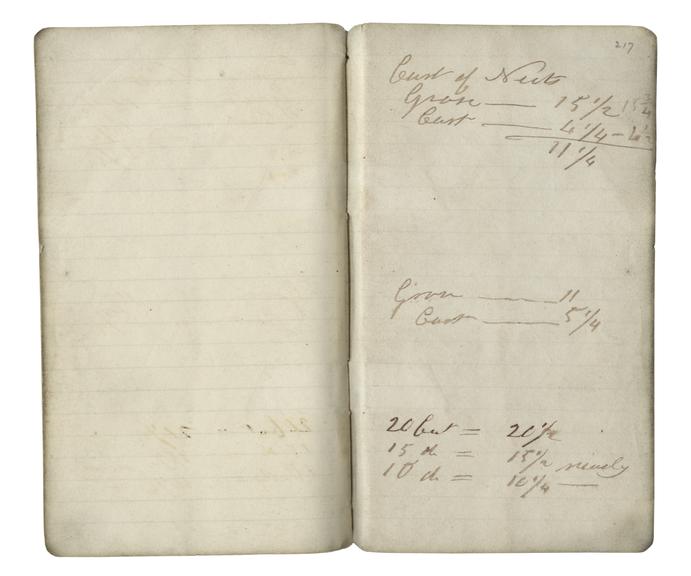 217
Cast of Nuts
Gross — 15 1/2 15 3/4
Cast — 4 1/4 -
11 1/4
Gross — 11
Cast — 5 1/4
20 Cwt = 20 1/2
15 do = 15 1/2 nearly
10 do = 10 1/4 —